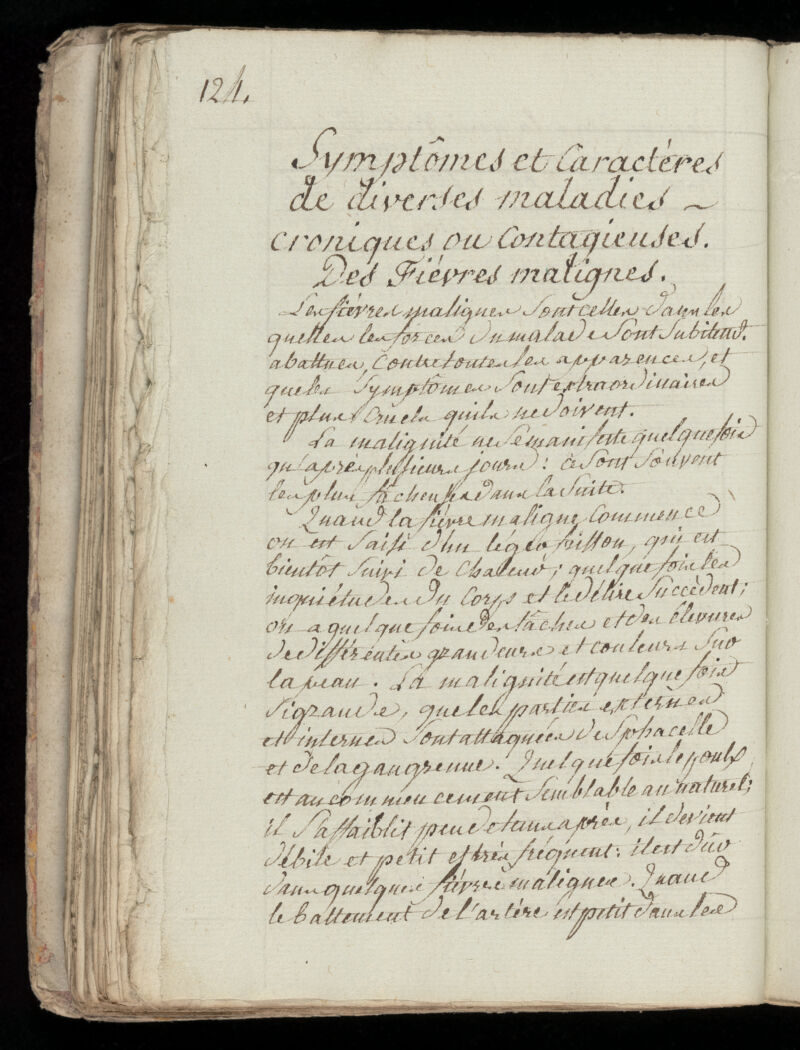 124.
Symptômes et Caractéres
de diverses maladies -
croniques ou Contagieuses.
Des Fiévres malignes.
Les fiévres malignes Sont celles dans les
quelles les forces du malade Sont Subitemt.
abattues, Contre toutes les apparences, et
que les Symptômes Sont extraordinaires
et plus Cruels quils ne doivent.
La malignité ne Se manifeste quelque fois
qu'après plusieurs jours : ce Sont Souvent
les plus fâcheuses dans la Suite.
Quand la fiévre maligne Commence
on est Saisi d'un léger frisson, qui est
bientôt Suivi de Chaleur ; quelque fois les
inquiétudes du Corps et le délire Succèdent ;
on a quelque fois des tâches et des élevures
de différentes grandeurs et couleurs Sur
la peau. La malignité est quelque fois
Si grande, que les parties externes
et internes Sont attaquées de Sphacelle
et de la gangrenne. Quelque fois le pouls
est au commencement Semblable au naturel ;
il S'affaiblit peu de tems après, il devient
débile et petit et très fréquent : il est dur
dans quelques fiévres malignes. Quand
le battement de l'artére est petit dans les